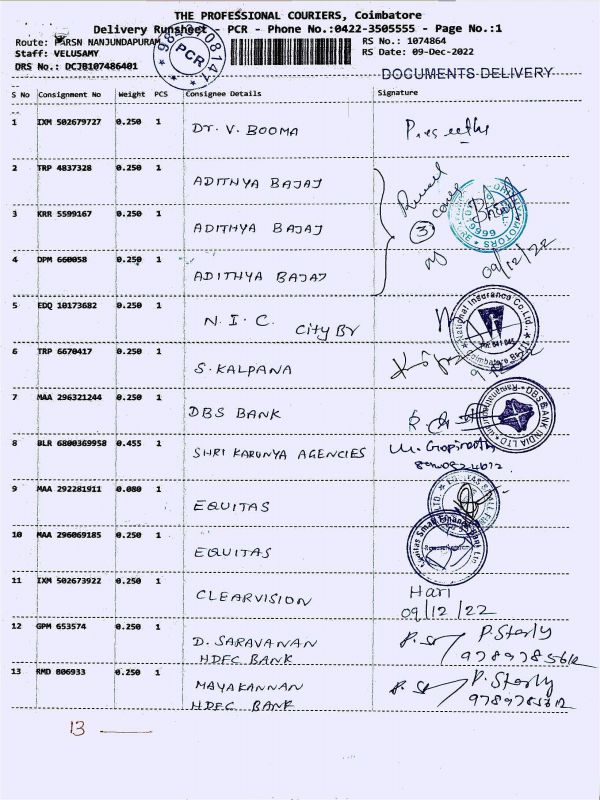 THE PROFESSIONAL COURIERS, Coimbatore
Delivery Runsheet - PCR - Phone No.:0422-3505555 - Page No.:1
Route: PARSN NANJUNDAPURAM
RS No.: 1074864
Staff: VELUSAMY
RS Date: 09-Dec-2022
DRS No.: DCJB107486401
PCR
DOCUMENTS DELIVERY
S No Consignment No Weight PCS Consignee Details Signature
1 IXM 502679727 0.250 1 Dr. V. BOOMA
2 TRP 4837328 0.250 1 ADITHYA BAJAJ
3 KRR 5599167 0.250 1 ADITHYA BAJAJ
3
4 DPM 660058 0.250 1 ADITHYA BAJAJ
09/12/22
5 EDQ 10173682 0.250 1 N.I.C. City Br
National Insurance Co.Ltd.
6 TRP 6670417 0.250 1 S. KALPANA
7 MAA 296321244 0.250 1 DBS BANK
DBS BANK INDIA LTD
8 BLR 6800369958 0.455 1 SHRI KARUNYA AGENCIES M. Gopinath
9 MAA 292281911 0.080 1 EQUITAS
10 MAA 296069185 0.250 1 EQUITAS
Equitas Small Finance Bank Ltd
11 IXM 502673922 0.250 1 CLEARVISION Hari
09/12/22
12 GPM 653574 0.250 1 D. SARAVANAN P. Sterly
HDFC BANK 9789785612
13 RMD 806933 0.250 1 MAYAKANNAN P. Sterly
HDFC BANK 9789785612
13